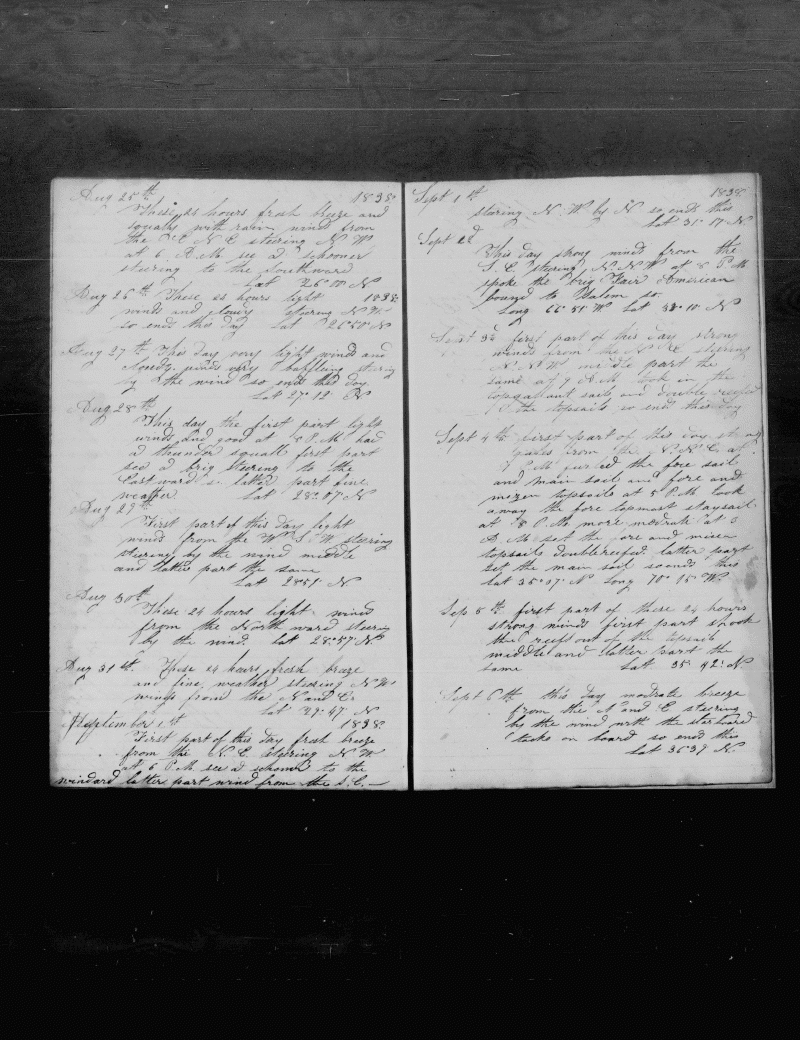 Aug 25th 1838
These 24 hours fresh breeze and
squals with rain wind from
the E N E steering N W
at 6 A.M see a schooner
steering to the Southward
Lat 26°10 N
Aug 26th These 24 hours light 1838
winds and steering N W
so ends this day Lat 26°50 N
Aug 27th This day very light winds and
cloudy. winds very baffling stering
by the wind so ends this day
Lat 27°12 N
Aug 28th
This day the first part light
wind and good at P.M had
a thunder squall first part
see a brig steering to the
Eastward latter part fine
weather Lat 28°07 N
Aug 29th
First part of this day light
winds from the W S W steering
steering by the wind middle
and latter part the same
Lat 28°51 N
Aug 30th
These 24 hours light wind
from the North ward steering
by the wind. lat 28°57 N
Aug 31st These 24 hours fresh breeze
and fine weather steering N W
wings from the N and E
Lat 29°47 N
September 1st 1838
First part of this day fresh breeze
from the N. E steering N W
at 6 P.M see a schoner to the
windard latter part wind from the S.E.—
Sept 1st 1838
stering N. W by N so ends this
Lat 31°17 N
Sept 2d
This day strong winds from the
S. E. stering N. N W at 8 P M
spoke the brig Fair American
bound to Salem so
Long 66°51 W Lat 33°10 N
Sept 3d first part of this day strong
winds from the N E stering
N N W middle part the
same at 9 A.M took in the
topgallant sails and double reefed
the topsails so end this day
Sept 4th first part of this day strong
gales from the N. N. E at
7 P M furled the fore sail
and main sail and fore and
mizen topsails at 5 P.M. took
away the fore topmost staysail
at 8 P.M more modrate at 3
A. M set the fore and mizen
topsails doublereefed latter part
set the main sail so ends this
Lat 35°07 N Long 70°15 W
Sep 5th first part of these 24 hours
strong winds first part shook
the reefs out of the topsails
middle and latter part the
same Lat 35°42 N
Sept 6th this day modrate breeze
from the N and E stering
by the wind with the starboard
tacks on board so ends this
Lat 36°39 N.